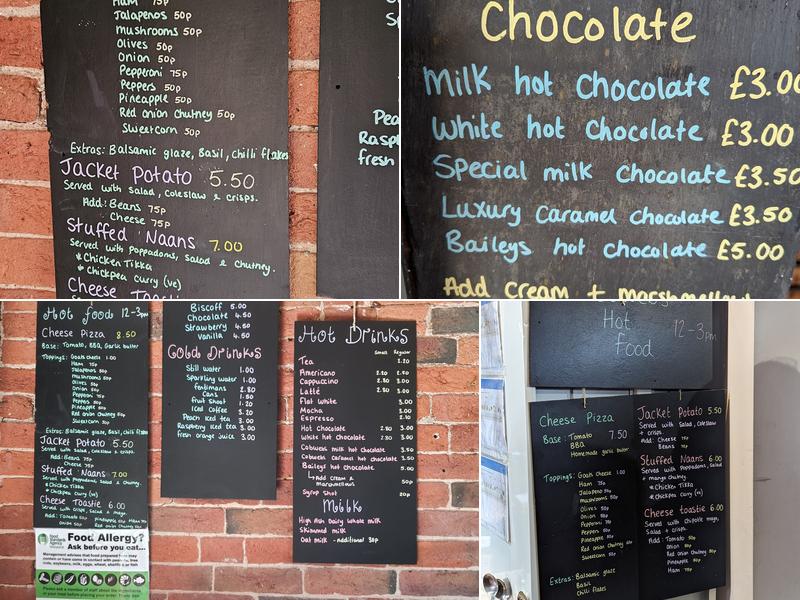 Ham 75p
Jalapenos 50p
mushrooms 50p
Olives 50p
Onion 50p
Pepperoni 75p
Peppers 50p
Pineapple 75p
Red onion chutney 50p
Sweetcorn 50p
Extras: Balsamic glaze, Basil, chilli flakes
Jacket Potato 5.50
Served with Salad, Coleslaw & crisps.
Add: Beans 75p
Cheese 75p
Stuffed Naans 7.00
Served with Poppadoms, Salad & chutney.
*Chicken Tikka
*Chickpea Curry (ve)
Cheese Toastie
Pea
Rasp
fresh
Chocolate
Milk hot Chocolate £3.00
White hot Chocolate £3.00
Special milk Chocolate £3.50
Luxury Caramel chocolate £3.50
Baileys hot chocolate £5.00
Add cream + marshmallow
Hot food 12-3pm
Cheese Pizza 8.50
Base: Tomato, BBQ, Garlic butter
Toppings: Goats cheese 1.00
Ham 75p
Jalapenos 50p
mushrooms 50p
Olives 50p
Onion 50p
Pepperoni 75p
Peppers 50p
Pineapple 75p
Red onion chutney 50p
Sweetcorn 50p
Extras: Balsamic glaze, Basil, chilli flakes
Jacket Potato 5.50
Served with Salad, Coleslaw & crisps.
Add: Beans 75p
Cheese 75p
Stuffed Naans 7.00
Served with Poppadoms, Salad & chutney.
*Chicken Tikka
*Chickpea Curry (ve)
Cheese Toastie 6.00
Served with Crisps, Salad & mayo.
Food Allergy?
Ask before you eat...
Biscoff 5.00
Chocolate 4.50
Strawberry 4.50
Vanilla 4.50
Cold Drinks
Still water 1.00
Sparkling water 1.00
Fentimans 2.80
Cans 1.80
fruit Shoot 1.20
Iced Coffee 3.20
Peach Iced tea 3.00
Raspberry Iced tea 3.00
fresh orange juice 3.00
Hot Drinks
Small Regular
Tea 2.20
Americano 2.20 2.50
Cappuccino 2.80 3.00
Latté 2.80 3.00
Flat White 3.00
Mocha 3.00
Espresso 2.10
Hot Chocolate 2.80 3.00
White hot chocolate 2.80 3.00
Cobwebs milk hot chocolate 3.50
Cobwebs Caramel hot chocolate 3.50
Baileys hot chocolate 5.00
Add Cream &
Marshmallows 50p
Syrup Shot 20p
Milk
High Ash Dairy whole milk
Skimmed milk
Oat milk - additional 30p
Hot
Food
12-3pm
Cheese Pizza
Base: Tomato 7.50
BBQ
Homemade garlic butter
Toppings: Goats Cheese 1.00
Ham 75p
Jalapeno 50p
mushrooms 50p
Olives 50p
Onion 50p
Pepperoni 75p
Peppers 50p
Pineapple 50p
Red onion Chutney 50p
Sweetcorn 50p
Extras: Balsamic glaze
Basil
Chilli flakes
Jacket Potato 5.50
Served with Salad, Coleslaw
+ crisps.
Add: Cheese 75p
Beans 75p
Stuffed Naans 6.00
Served with Poppadoms, Salad
+ mango chutney
*Chicken Tikka
*Chickpea Curry (ve)
Cheese toastie 6.00
Served with Chipotle mayo,
Salad + Crisps.
Add: Tomato 50p
Onion 50p
Red onion chutney 50p
Pineapple 50p
Ham 75p